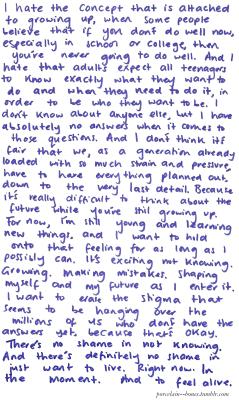 I hate the concept that is attached
to growing up, when some people
believe that if you dont do well now,
especially in school or college, then
you're never going to do well. And I
hate that adults expect all teenagers
to know exactly what they want to
do and when they need to do it, in
order to be who they want to be. I
don't know about anyone else, but I have
absolutely no answers when it comes to
those questions. And I don't think it's
fair that we, as a generation already
loaded with so much strain and pressure,
have to have everything planned out
down to the very last detail. Because
it's really difficult to think about the
future while you're still growing up.
For now, I'm still young and learning
new things, and I want to hold
onto that feeling for as long as I
possibly can. It's exciting not knowing.
Growing. Making mistakes. Shaping
myself and my future as I enter it.
I want to erase the stigma that
seems to be hanging over the
millions of us who don't have the
answers yet. because that's okay.
There's no shame in not knowing.
And there's definitely no shame in
just want to live. Right now. In
the moment. And to feel alive.
porcelain--bones.tumblr.com